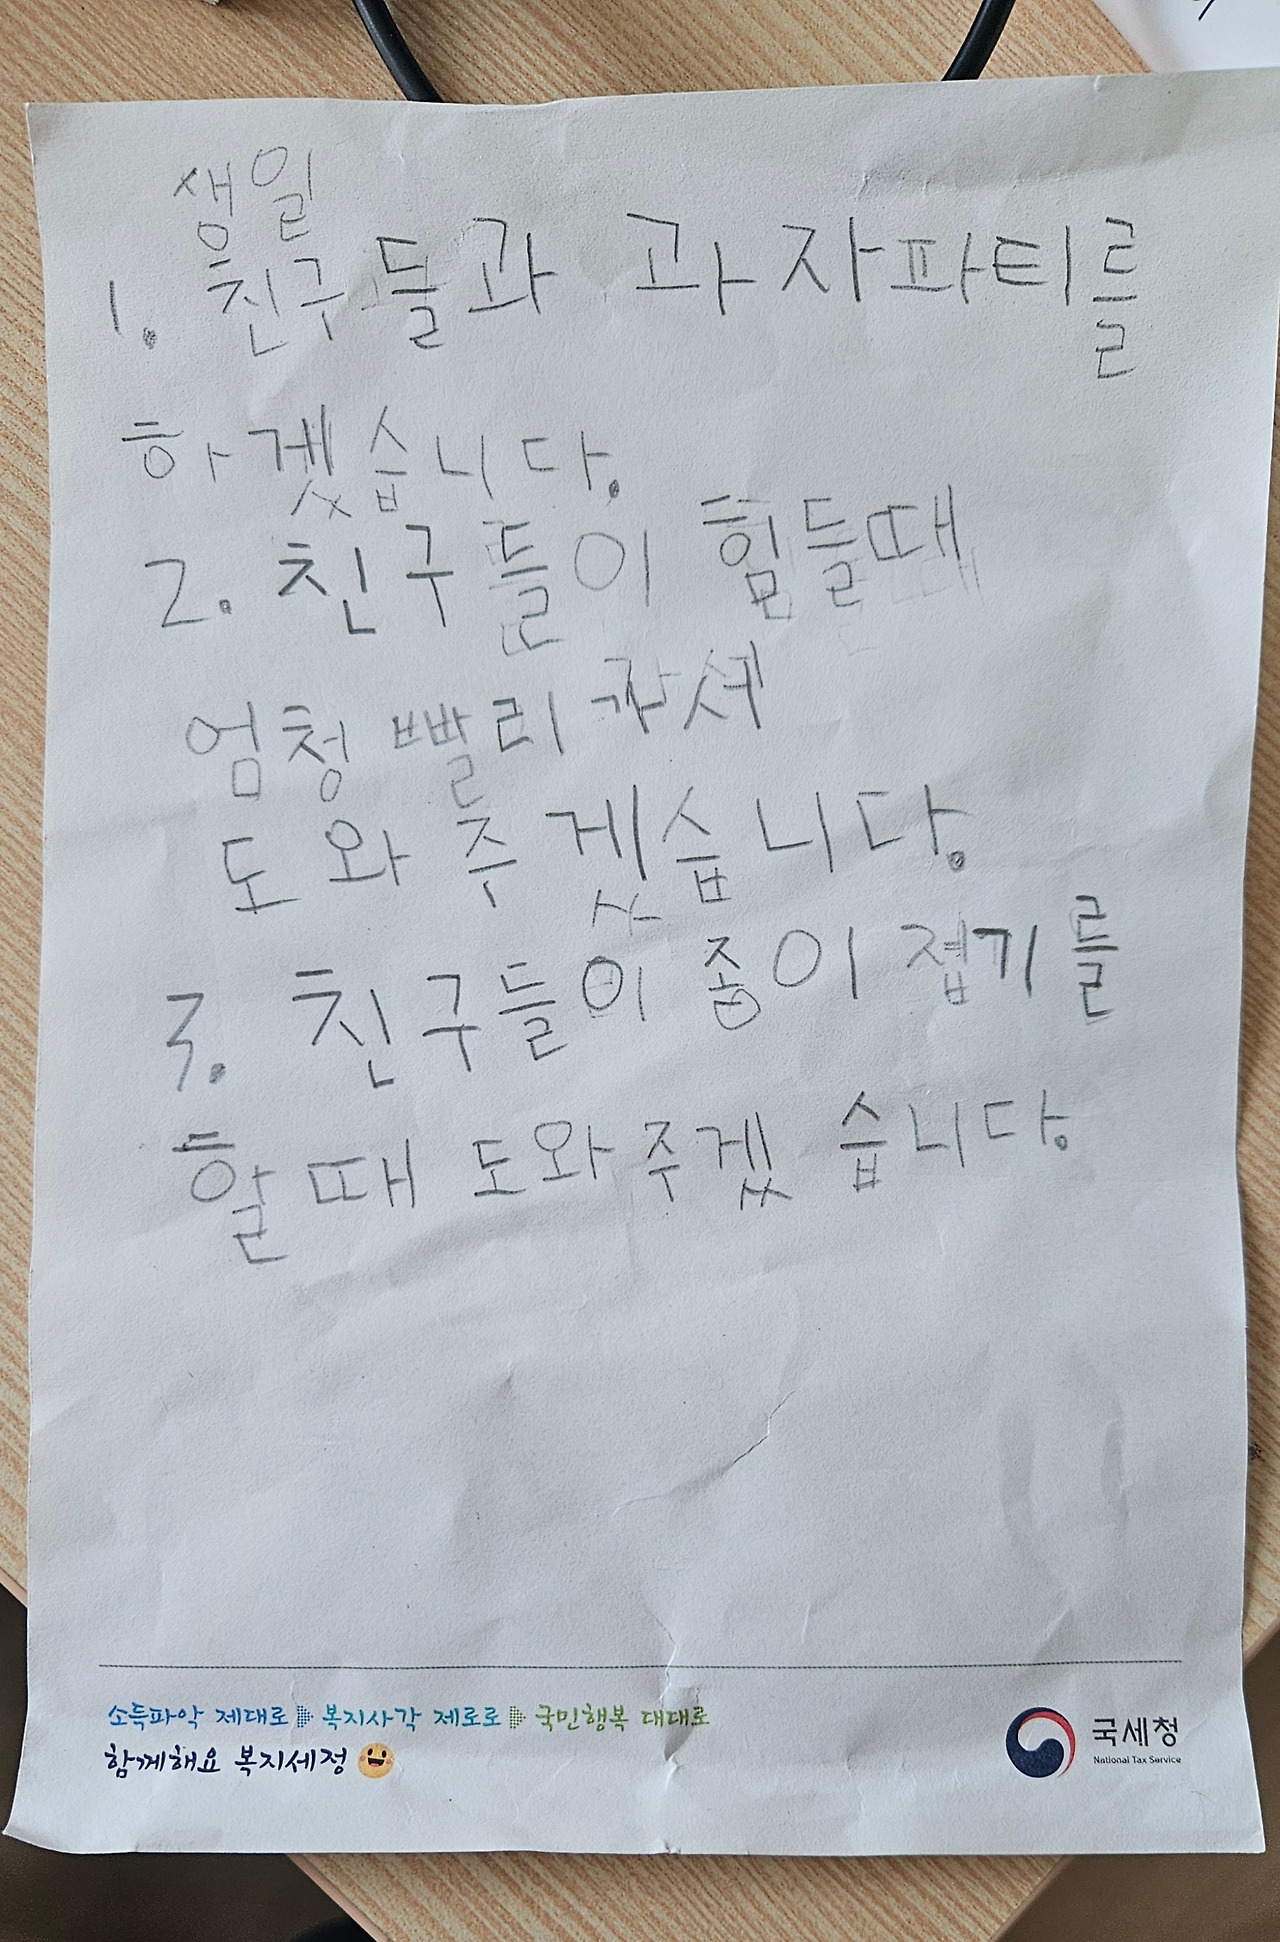 생일
1. 친구들과 과자파티를
하겠습니다.
2. 친구들이 힘들때
엄청 빨리 가서
도와주겟습니다.
3. 친구들이 종이 접기를
할 때 도와주겠습니다.
소득파악 제대로 복지사각 제로로 국민행복 대대로
함께해요 복지세정
국세청
National Tax Service